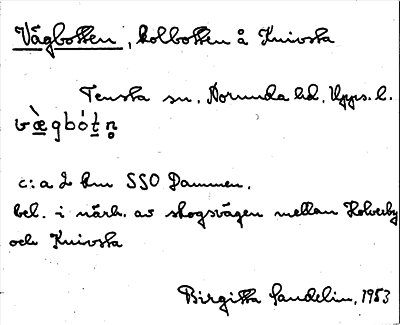 Vägbotten, kolbotten å Knivsta
Tensta sn. Norunda hd. Upps. l.
væ̀gbót̠n̥
c:a 2 km SSO Dammen,
bel. i närh. av skogsvägen mellan Holverby
och Knivsta
Birgitta Sandelin, 1953